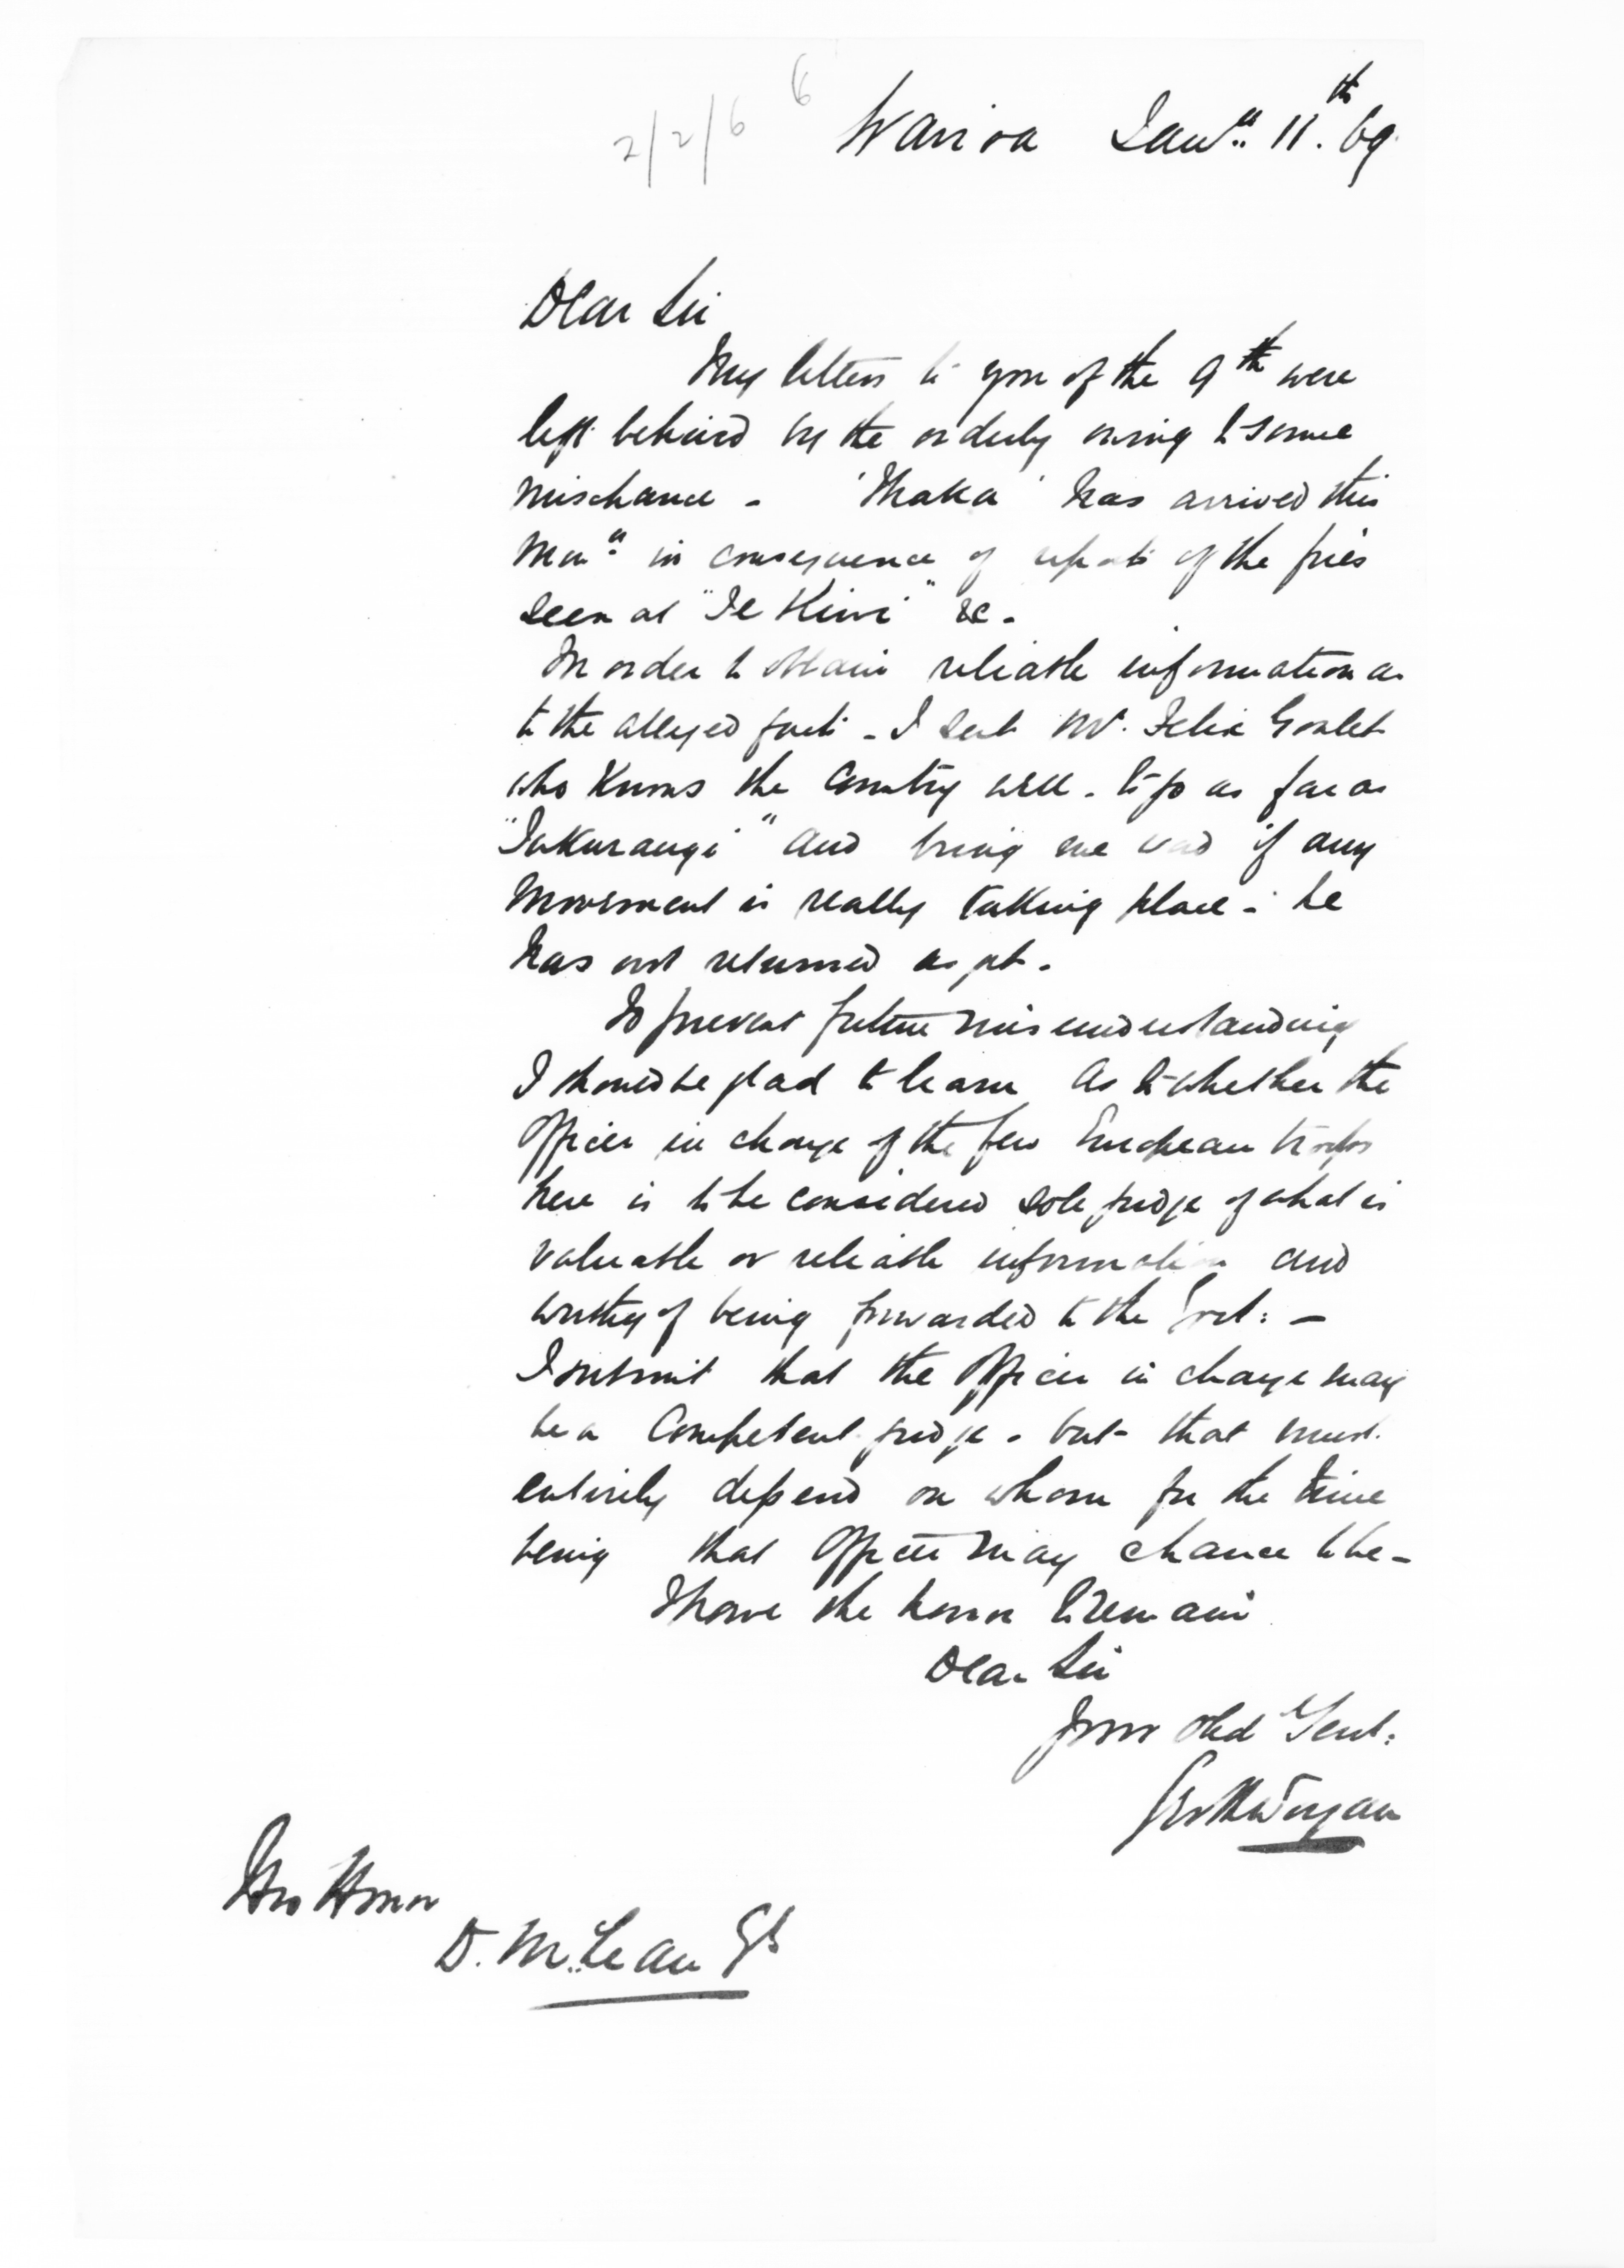 2/2/6 6
Wairoa Janʸ 11th. 69.
Dear Sir
My letters to you of the 9th were
left behind by the orderly owing to some
mischance - 'Ihaka' has arrived this
in consequence of reports of the fires
seen at "Te Kiwi" &c -
In order to obtain reliable information as
to the alleged facts - I sent Mr. Felix Goulet
who knows the Country well - to go as far as
"Pukurangi" and bring me word if any
movement is really taking place - he
has not returned as yet.
To prevent future misunderstanding
I should be glad to learn as to whether the
Officer in charge of the few European troops
here is to be considered sole judge of what is
valuable or reliable information and
worthy of being forwarded to the Govt: -
I submit that the Officer in charge may
be a Competent judge - but that must
entirely depend on whom for the time
being that Officer may chance to be -
I have the honor to remain
Dear Sir
Your Obed Servt:
His Honor
D. McLean Esq